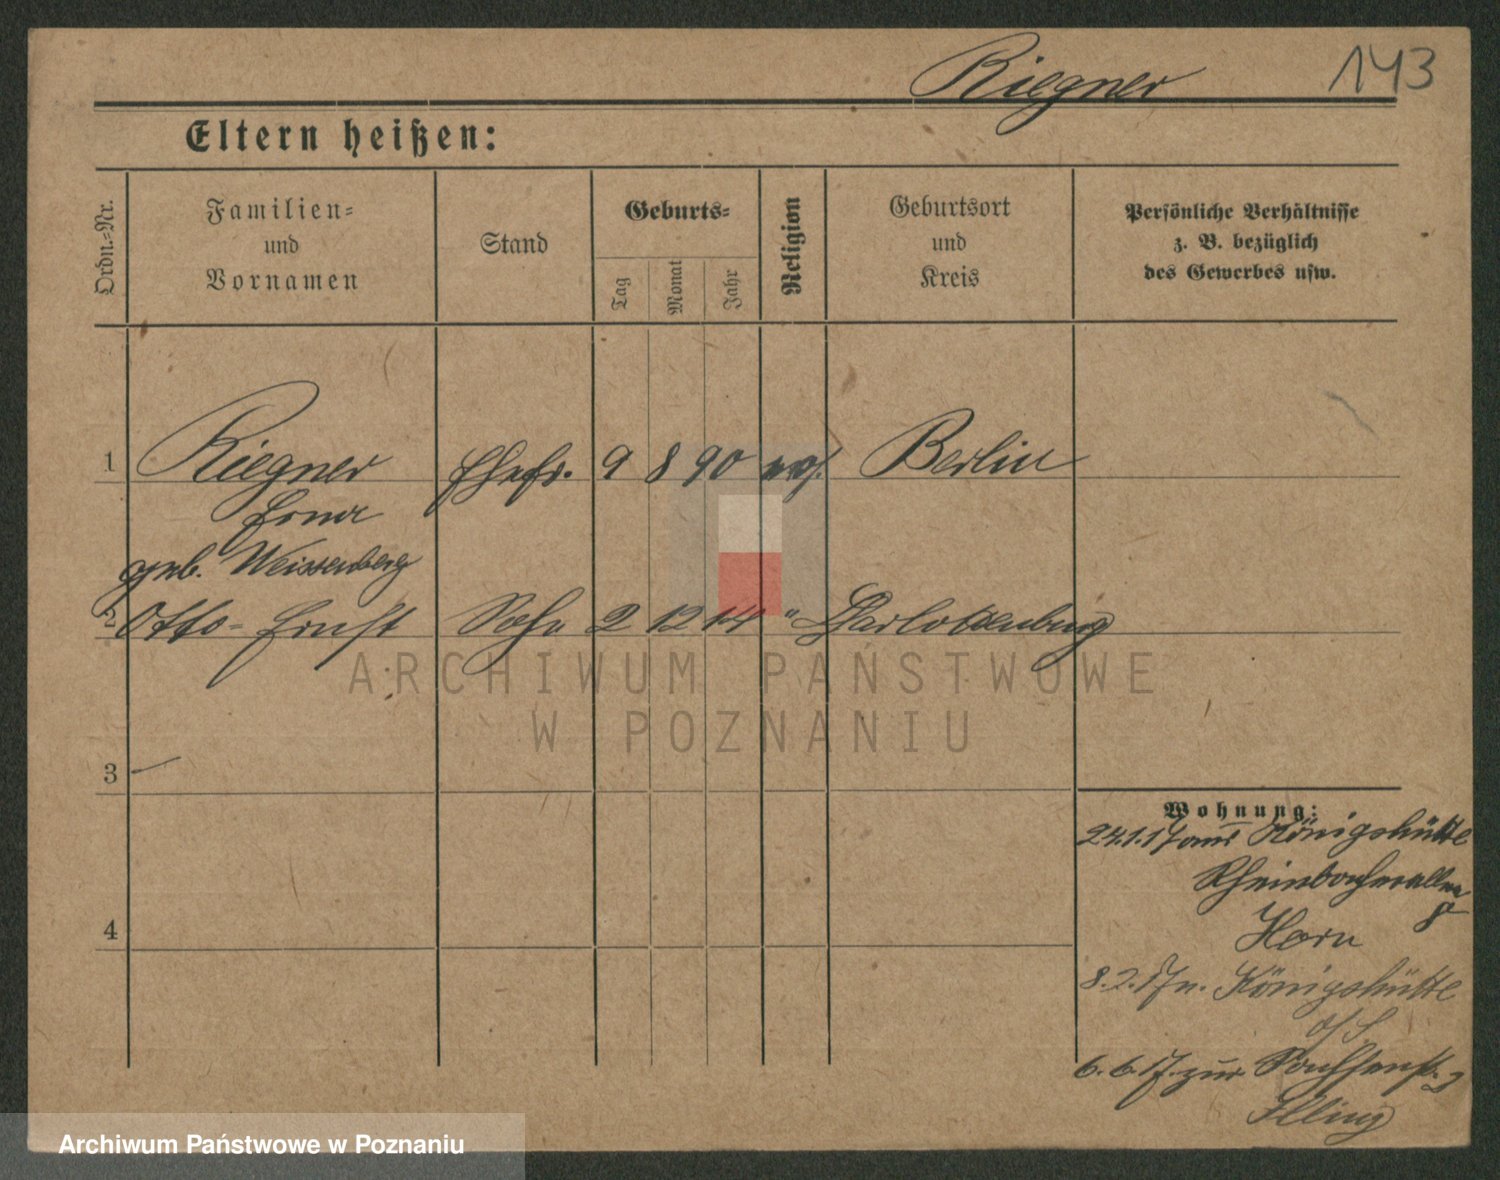 Riegner 143
Eltern heißen:
Ordn.-Nr.
Familien-
und
Vornamen
Stand
Geburts-
Tag
Monat
Jahr
Religion
Geburtsort
und
Kreis
Persönliche Verhältnisse
z. B. bezüglich
des Gewerbes usw.
1 Riegner Ehefr. 9 8 90 Berlin
Erna
geb. Weissenberg
2 Otto-Ernst Sohn 2 12 14 " Charlottenburg
ARCHIWUM PAŃSTWOWE
W POZNANIU
3
4
Wohnung:
24.1.17 aus Königshütte
8
Horn
8.2.17 n. Königshütte
O/S
6.6.17 zur. 2
Illing
Archiwum Państwowe w Poznaniu